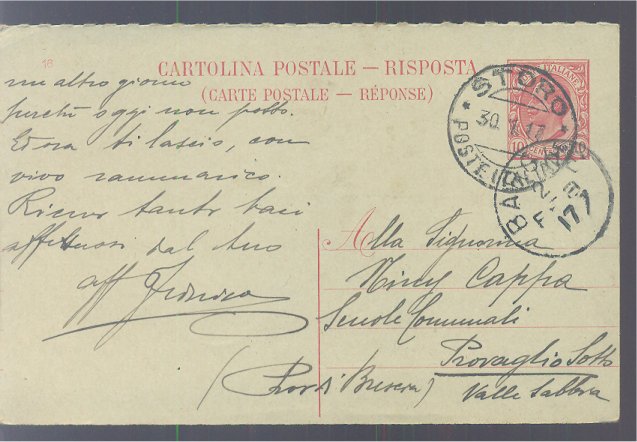 16
CARTOLINA POSTALE — RISPOSTA
(CARTE POSTALE — RÉPONSE)
STORO
30
POSTE ITALIANE
BA
17
un altro giorno
perchè oggi non posso.
Ed ora ti lascio, con
vivo rammarico.
Ricevi tanti baci
affettuosi dal tuo
aff
Alla Signorina
Niny Cappa
Scuole Comunali
Provaglio Sotto
Valle Sabbia
(Prov di Brescia)